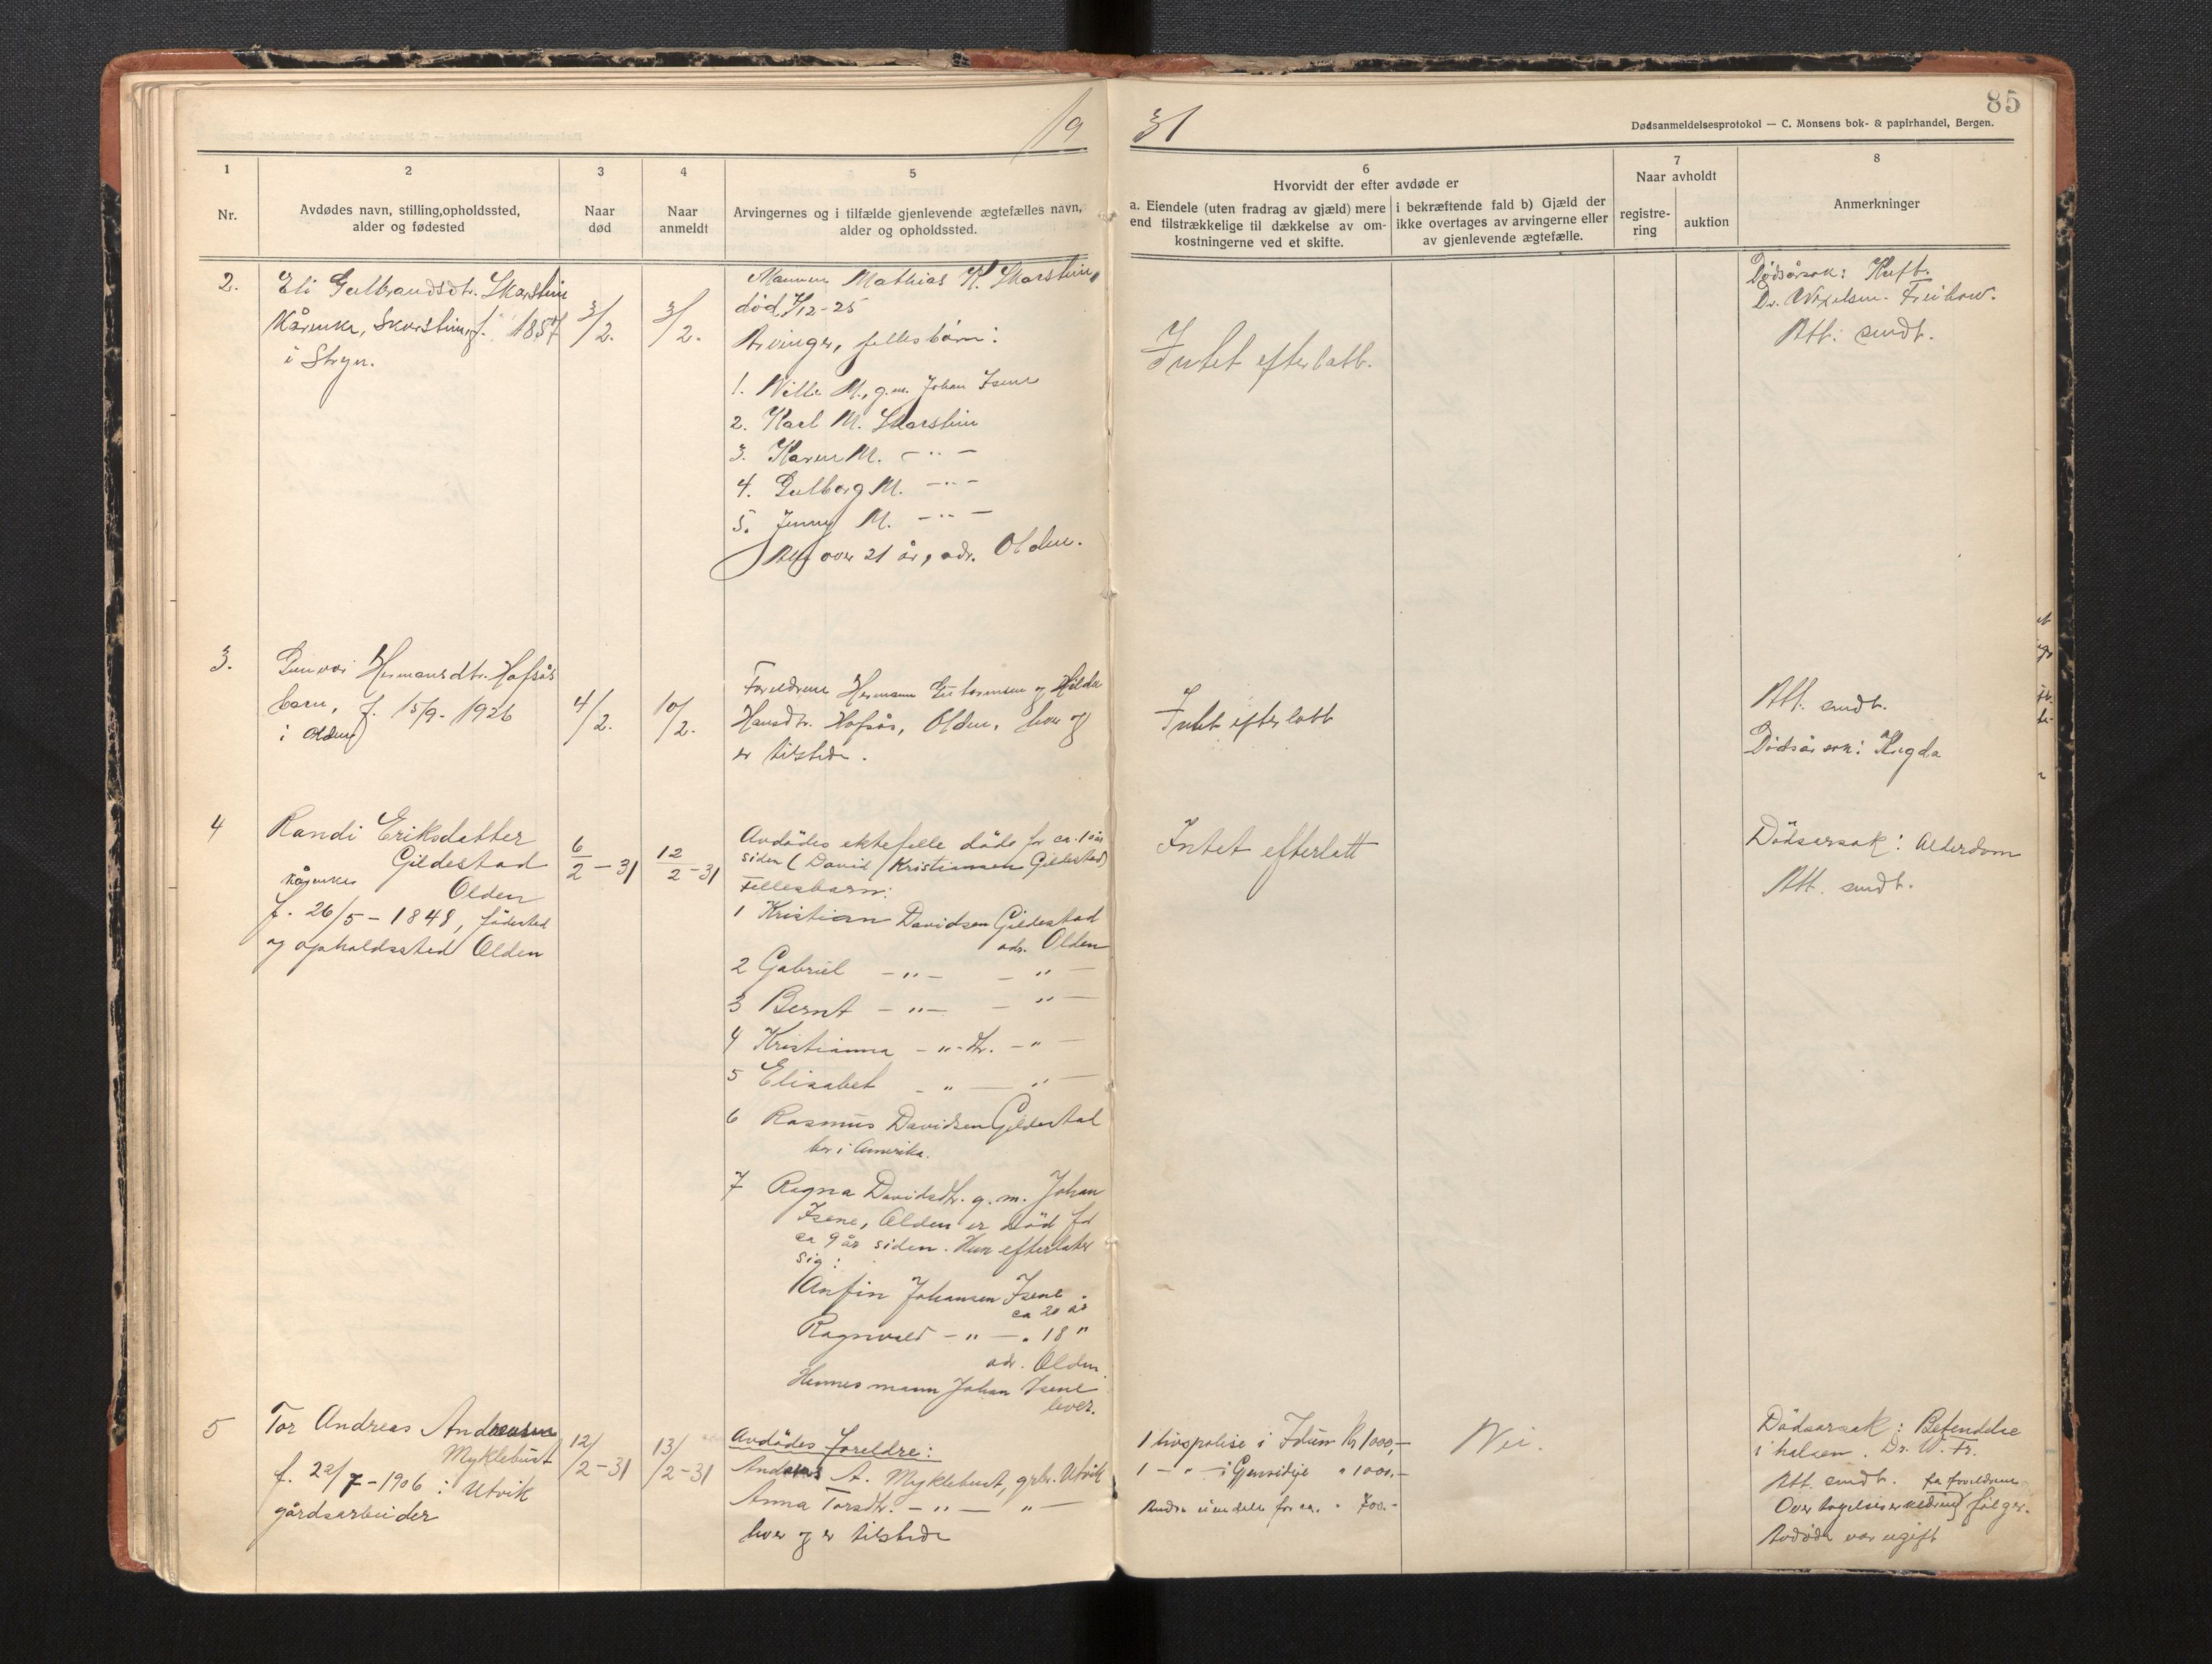 19
31
85
Dødsanmeldelsesprotokol — C. Monsens bok- & papirhandel, Bergen.
1
Nr.
2
Avdødes navn, stilling, opholdssted,
alder og fødested
3
Naar
død
4
Naar
anmeldt
5
Arvingernes og i tilfælde gjenlevende ægtefælles navn,
alder og opholdssted.
6
Hvorvidt der efter avdøde er
a. Eiendele (uten fradrag av gjæld) mere
end tilstrækkelige til dækkelse av om-
kostningerne ved et skifte.
i bekræftende fald b) Gjæld der
ikke overtages av arvingerne eller
av gjenlevende ægtefælle.
7
Naar avholdt
registre-
ring
auktion
8
Anmerkninger
2.
Eli Gulbrandsdtr. Skarstein
Kårenke, Skarstein, f. 1857
i Stryn.
3/2.
3/2.
Mannen Mathias K. Skarstein,
død 7/12-25
Arvinger, fellesbørn:
1. M., g.m. Johan Isene
2. Karl M. Skarstein
3. Karen M. — " —
4. Gulborg M. — " —
5. Jenny M. — " —
Alle over 21 år, adr. Olden.
Intet efterlatt.
Dødsårsak: Kreft.
Dr.
Att. sendt.
3.
Gunvor Hermansdtr. Hafsås
barn, f. 15/9-1926
i Olden
4/2.
10/2.
Foreldrene Hermann Guttormsen og Hilda
Hansdtr. Hafsås, Olden, lever og
er tilstede.
Intet efterlatt
Att. sendt.
Dødsårsak:
4
Randi Eriksdatter
Gildestad
kårenke
Olden
f. 26/5-1848, fødested
og opholdssted Olden
6/2-31
12/2-31
Avdødes ektefelle døde for ca. 10 år
siden (David Kristiansen Gildestad)
Fellesbarn:
1 Kristian Davidsen Gildestad
adr. Olden
2 Gabriel — " — — " —
3 Bernt — " — — " —
4 Kristianna — " - dtr. — " —
5 Elisabet — " — " —
6 Rasmus Davidsen Gildestad
bor i Amerika.
7 Ragna Davidsdtr. g.m. Johan
Isene, Olden er død for
ca 9 år siden. Hun efterlater
sig:
Anfin Johansen Isene
ca 20 år
Ragnvald — " — " 18 "
adr. Olden.
Hennes mann Johan Isene
lever.
Intet efterlatt
Dødsårsak: Alderdom
Att. sendt.
5
Tor Andreas Andreassen
Myklebust
f. 22/7-1906 i Utvik
gårdsarbeider
12/2-31
13/2-31
Avdødes foreldre:
Andreas A. Myklebust, grbr. Utvik
Anna Torsdtr. — " — " —
lever og er tilstede
1 livspolise i Idun Kr 1000,-
1 — " — i Gjensidige " 1000,-
Andre eiendele for ca. " 700.-
Nei.
Dødsårsak: Betendelse
i halsen. Dr. W. Fr.
Att. sendt. fra foreldrene
Overtagelseserklæring følger.
Avdøde var ugift